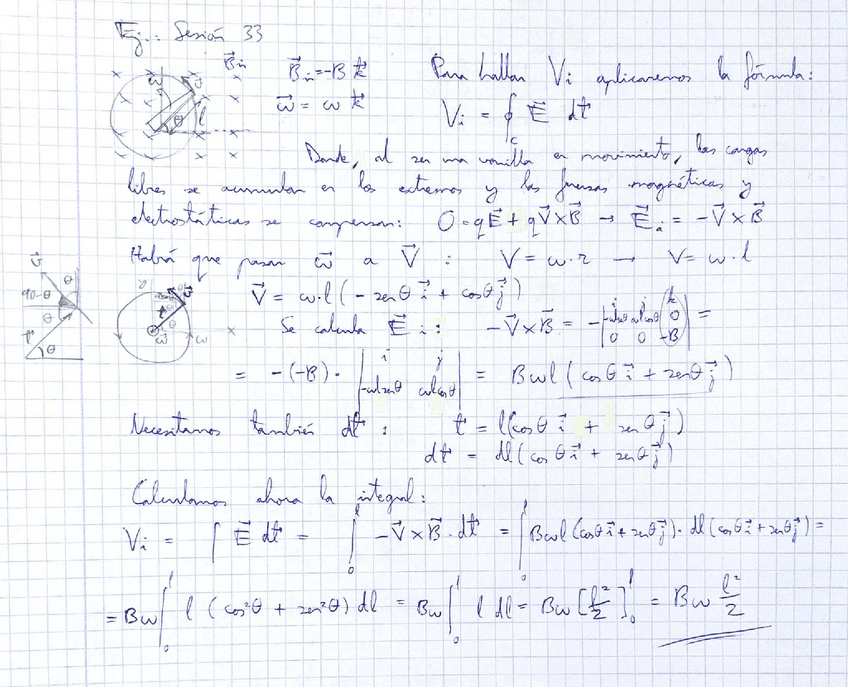 Ej.: Sesión 33
B⃗in B⃗in = -B k⃗
ω⃗ = ω k⃗
Para hallar Vi aplicaremos la fórmula:
Vi = ∮c E⃗ dt⃗
Donde, al ser una varilla en movimiento, las cargas
libres se acumulan en los extremos y las fuerzas magnéticas y
electrostáticas se compensan: 0 = qE⃗ + qV⃗ x B⃗ → E⃗i = -V⃗ x B⃗
Habrá que pasar ω⃗ a V⃗ : V = ω·r → V = ω·l
V⃗ = ω·l (- senθ i⃗ + cosθ j⃗)
Se calcula E⃗i : -V⃗ x B⃗ = - | i j k ; -ωlsenθ ωlcosθ 0 ; 0 0 -B | =
= -(-B) · | i j ; -ωlsenθ ωlcosθ | = Bωl (cosθ i⃗ + senθ j⃗)
Necesitamos también dt⃗ : t⃗ = l(cosθ i⃗ + senθ j⃗)
dt⃗ = dl (cosθ i⃗ + senθ j⃗)
Calculamos ahora la integral:
Vi = ∫ E⃗ dt⃗ = ∫₀ˡ -V⃗ x B⃗ · dt⃗ = ∫₀ˡ Bωl (cosθ i⃗ + senθ j⃗) · dl (cosθ i⃗ + senθ j⃗) =
= Bω ∫₀ˡ l (cos²θ + sen²θ) dl = Bω ∫₀ˡ l dl = Bω [l²/2]₀ˡ = Bω l²/2
v⃗ θ
90-θ
θ
r⃗ θ
ω⃗ v⃗
θ l
v⃗
θ
ω⃗ ω